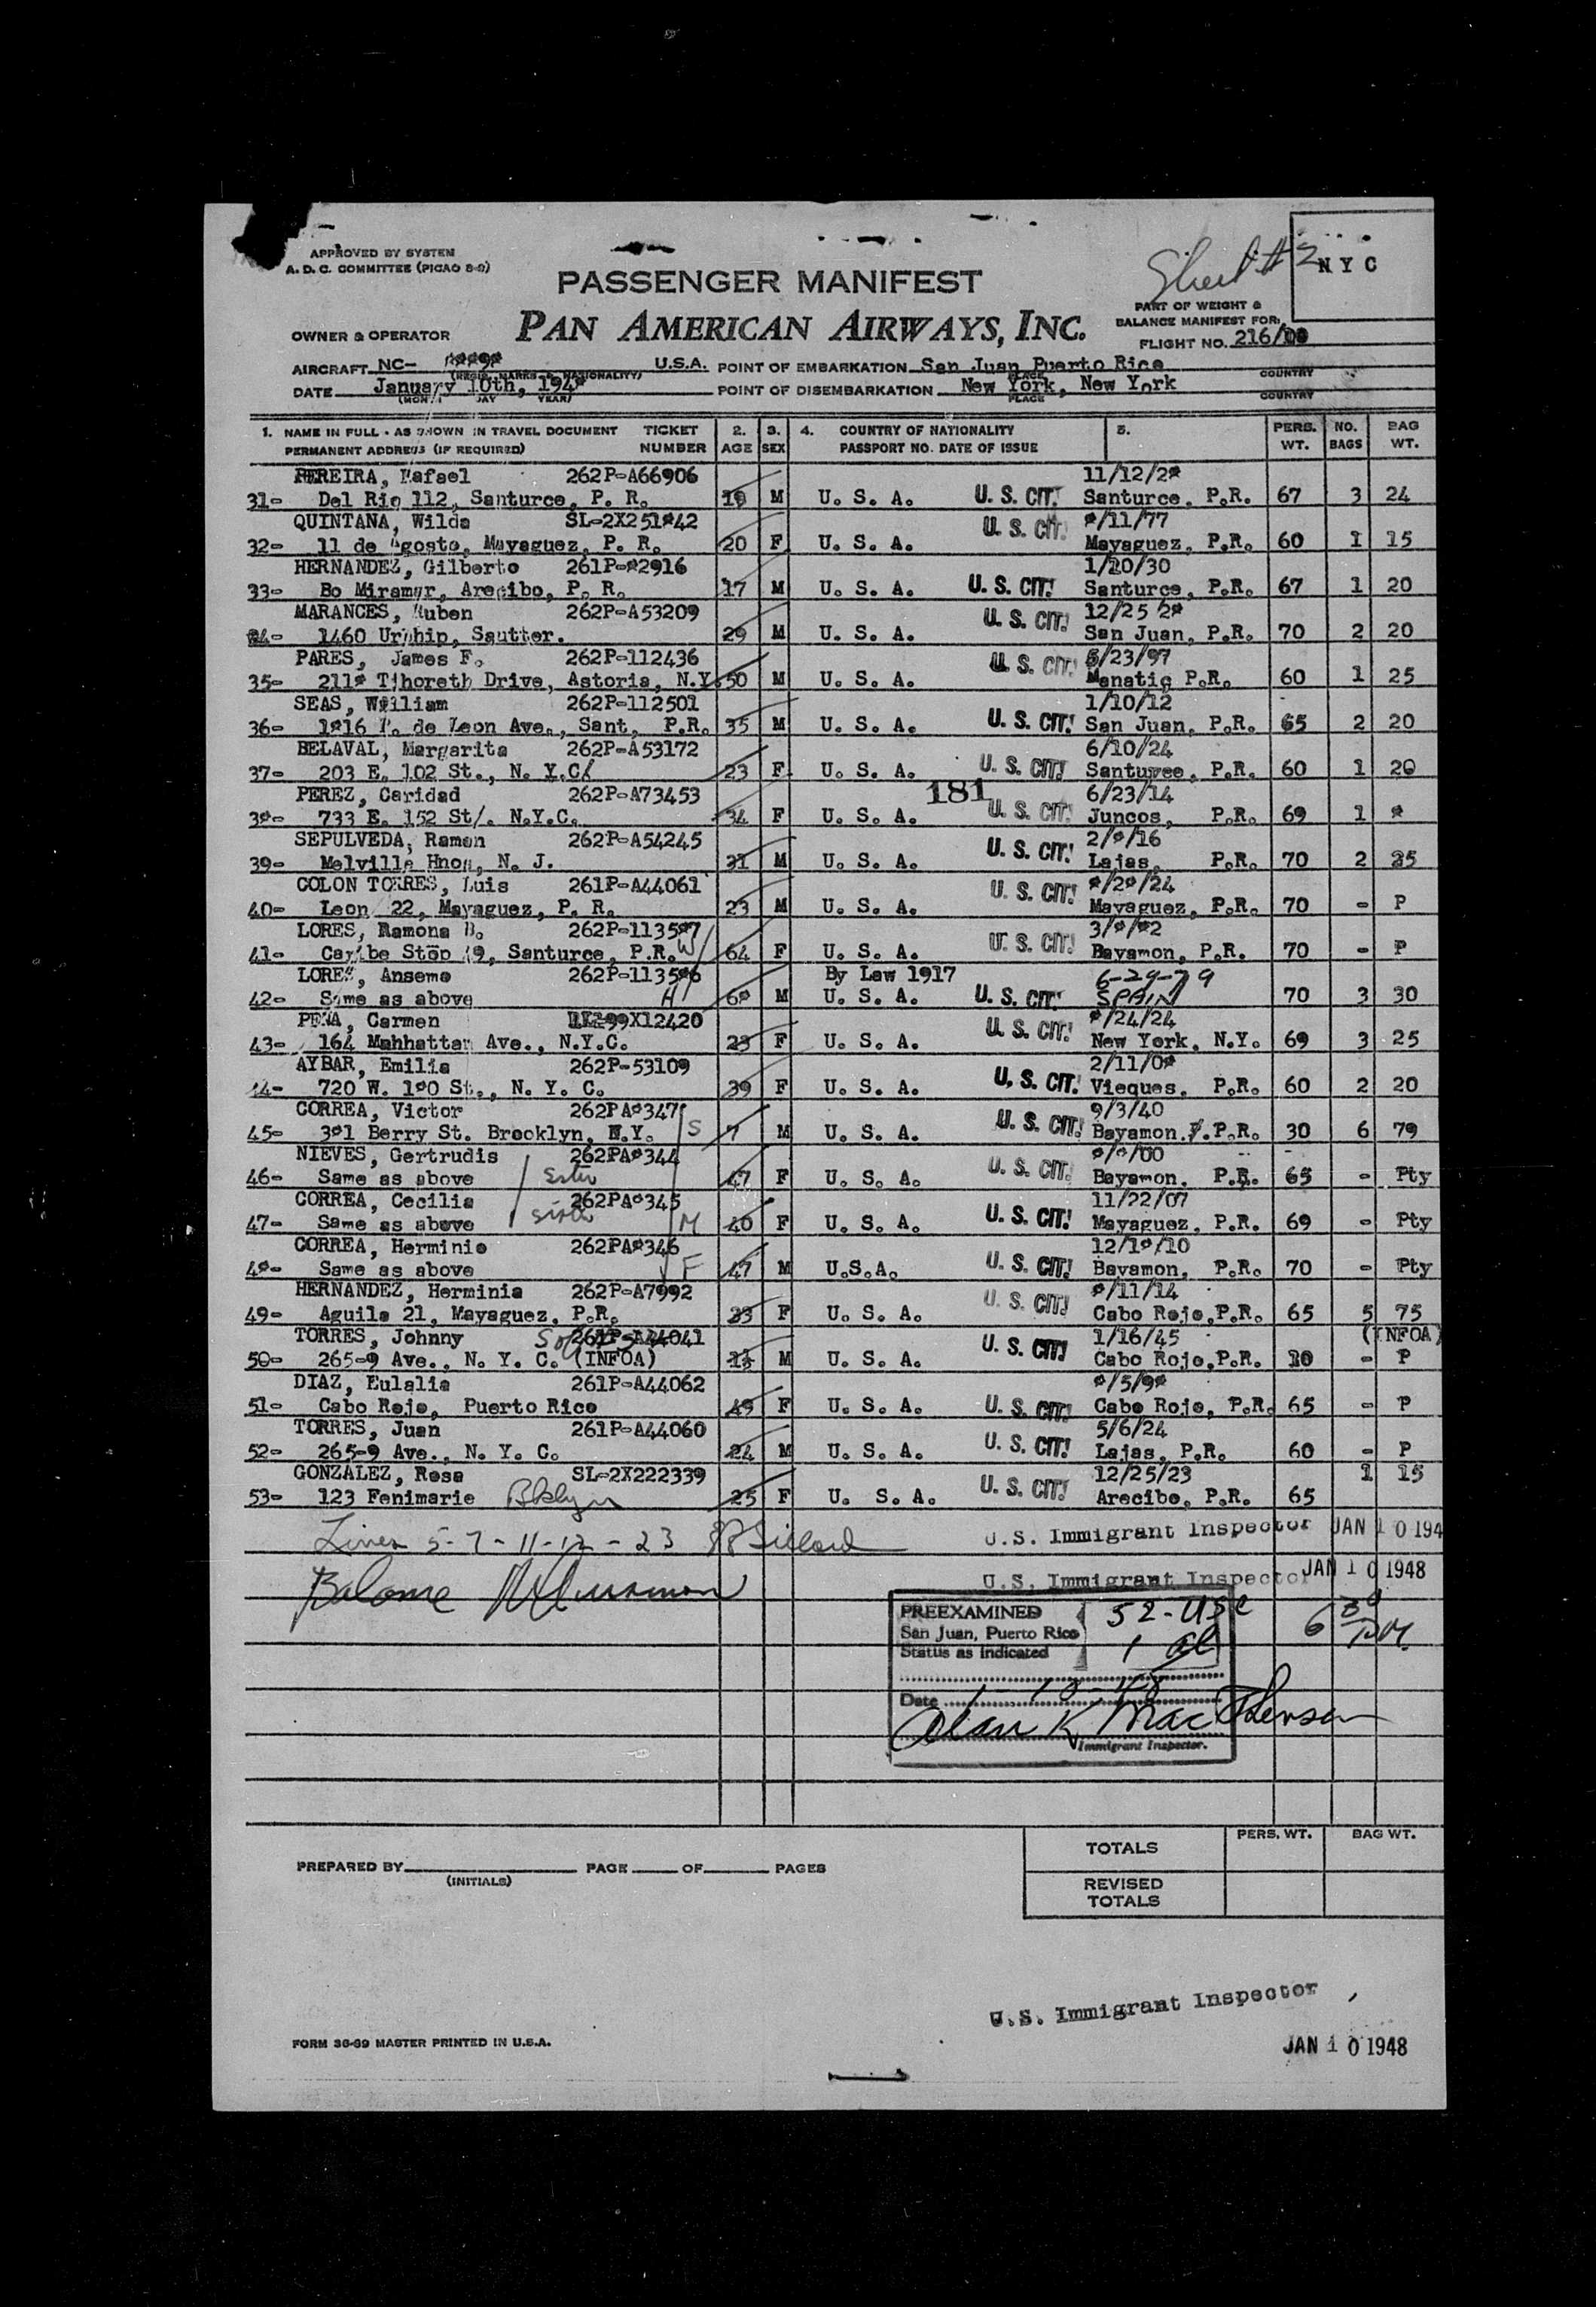 APPROVED BY SYSTEM
A. D. C. COMMITTEE (PICAO 8-9)
Sheet # 2
N Y C
PASSENGER MANIFEST
PART OF WEIGHT &
BALANCE MANIFEST FOR:
OWNER & OPERATOR
PAN AMERICAN AIRWAYS, INC.
FLIGHT NO. 216/
AIRCRAFT NC- U.S.A. POINT OF EMBARKATION San Juan Puerto Rico
(REGIS. MARKS & NATIONALITY) PLACE COUNTRY
DATE January 10th, 194* POINT OF DISEMBARKATION New York, New York
(MONTH DAY YEAR) PLACE COUNTRY
1. NAME IN FULL - AS SHOWN IN TRAVEL DOCUMENT TICKET 2. 3. 4. COUNTRY OF NATIONALITY 5. PERS. NO. BAG
PERMANENT ADDRESS (IF REQUIRED) NUMBER AGE SEX PASSPORT NO. DATE OF ISSUE WT. BAGS WT.
PEREIRA, Rafael 262P-A66906 11/12/2*
31- Del Rio 112, Santurce, P. R. 19 M U. S. A. U. S. CIT. Santurce, P.R. 67 3 24
QUINTANA, Wilda SL-2X251*42 */11/77
32- 11 de Agosto, Mayaguez, P. R. 20 F U. S. A. U. S. CIT. Mayaguez, P.R. 60 1 15
HERNANDEZ, Gilberto 261P-*2916 1/20/30
33- Bo Miramar, Arecibo, P. R. 17 M U. S. A. U. S. CIT! Santurce, P.R. 67 1 20
MARANCES, Ruben 262P-A53209 12/25 2*
*4- 1460 Sautter. 29 M U. S. A. U. S. CIT! San Juan, P.R. 70 2 20
PARES, James F. 262P-112436 5/23/97
35- 211* Drive, Astoria, N.Y. 50 M U. S. A. U. S. CIT! Manatic P.R. 60 1 25
SEAS, William 262P-112501 1/10/12
36- 1*16 P. de Leon Ave., Sant, P.R. 35 M U. S. A. U. S. CIT! San Juan, P.R. 65 2 20
BELAVAL, Margarita 262P-A53172 6/10/24
37- 203 E. 102 St., N. Y.C/ 23 F U. S. A. U. S. CIT! P.R. 60 1 20
PEREZ, Caridad 262P-A73453 181 6/23/14
3*- 733 E. 152 St/. N.Y.C. 34 F U. S. A. U. S. CIT! Juncos, P.R. 69 1 *
SEPULVEDA, Ramon 262P-A54245 2/*/16
39- Melville N. J. 31 M U. S. A. U. S. CIT! Lajas, P.R. 70 2 35
COLON TORRES, Luis 261P-A44061 */2*/24
40- Leon 22, Mayaguez, P. R. 23 M U. S. A. U. S. CIT! Mayaguez, P.R. 70 - P
LORES, Ramona B. 262P-1135*7 3/*/*2
41- Caribe Stop 19, Santurce, P.R. W 64 F U. S. A. U. S. CIT! Bayamon, P.R. 70 - P
LORES, Anseme 262P-1135*6 By Law 1917 6-29-79
42- Same as above H 6* M U. S. A. U. S. CIT. SPAIN 70 3 30
PEÑA, Carmen 99X12420 */24/24
43- 164 Mahhattan Ave., N.Y.C. 23 F U. S. A. U. S. CIT! New York, N.Y. 69 3 25
AYBAR, Emilia 262P-53109 2/11/0*
44- 720 W. 1*0 St., N. Y. C. 39 F U. S. A. U. S. CIT! Vieques, P.R. 60 2 20
CORREA, Victor 262PA*347 9/3/40
45- 3*1 Berry St. Brooklyn, N.Y. S 7 M U. S. A. U. S. CIT! Bayamon. P.R. 30 6 79
NIEVES, Gertrudis 262PA*344 */*/00
46- Same as above Sister 47 F U. S. A. U. S. CIT. Bayamon, P.R. 65 - Pty
CORREA, Cecilia 262PA*345 11/22/07
47- Same as above sister M 40 F U. S. A. U. S. CIT! Mayaguez, P.R. 69 - Pty
CORREA, Herminio 262PA*346 12/1*/10
4*- Same as above F 47 M U.S.A. U. S. CIT! Bayamon, P.R. 70 - Pty
HERNANDEZ, Herminia 262P-A7992 */11/14
49- Aguila 21, Mayaguez, P.R. 33 F U. S. A. U. S. CIT! Cabo Rojo,P.R. 65 5 75
TORRES, Johnny 261P-A44041 1/16/45 (INFOA)
50- 265-9 Ave., N. Y. C. (INFOA) M U. S. A. U. S. CIT! Cabo Rojo,P.R. - P
DIAZ, Eulalia 261P-A44062 */5/9*
51- Cabo Rojo, Puerto Rico 49 F U. S. A. U. S. CIT! Cabo Rojo, P.R. 65 - P
TORRES, Juan 261P-A44060 5/6/24
52- 265-9 Ave., N. Y. C. 24 M U. S. A. U. S. CIT! Lajas, P.R. 60 - P
GONZALEZ, Rosa SL-2X222339 12/25/23 1 15
53- 123 Fenimarie Bklyn 25 F U. S. A. U. S. CIT! Arecibo, P.R. 65
Lines 5-7-11-12-23 U.S. Immigrant Inspector JAN 10 194
Balance U.S. Immigrant Inspector JAN 10 1948
PREEXAMINED 52-USC 6 30 P.M.
San Juan, Puerto Rico
Status as indicated 1 al
Date 1-10-48
Alan K MacPherson
Immigrant Inspector.
PERS. WT. BAG WT.
TOTALS
PREPARED BY PAGE OF PAGES
(INITIALS)
REVISED
TOTALS
U.S. Immigrant Inspector
FORM 36-69 MASTER PRINTED IN U.S.A.
JAN 10 1948